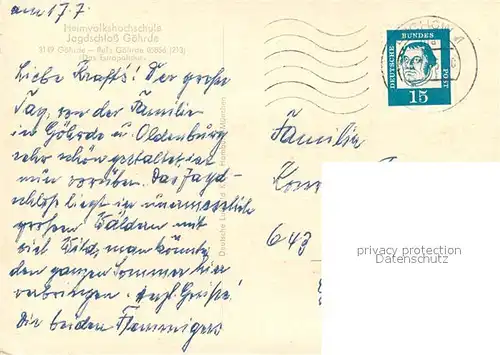 am 17.7.
Heimvolkshochschule
Jagdschloß Göhrde
3149 Göhrde - Ruf: Göhrde (05856) (213)
Das Europahaus
Liebe Krafts! Der große
Tag, von der Familie
in Göhrde u. Oldenburg
sehr schön gestaltet, ist
nun vorüber. Das Jagd-
schloß liegt in unermesslich
großen Wäldern mit
viel Wild, man könnte
den ganzen Sommer hier
verbringen. Herzl. Grüße!
Die beiden Flemmigers
DEUTSCHE
BUNDES
POST
15
Familie
643
privacy protection
Datenschutz